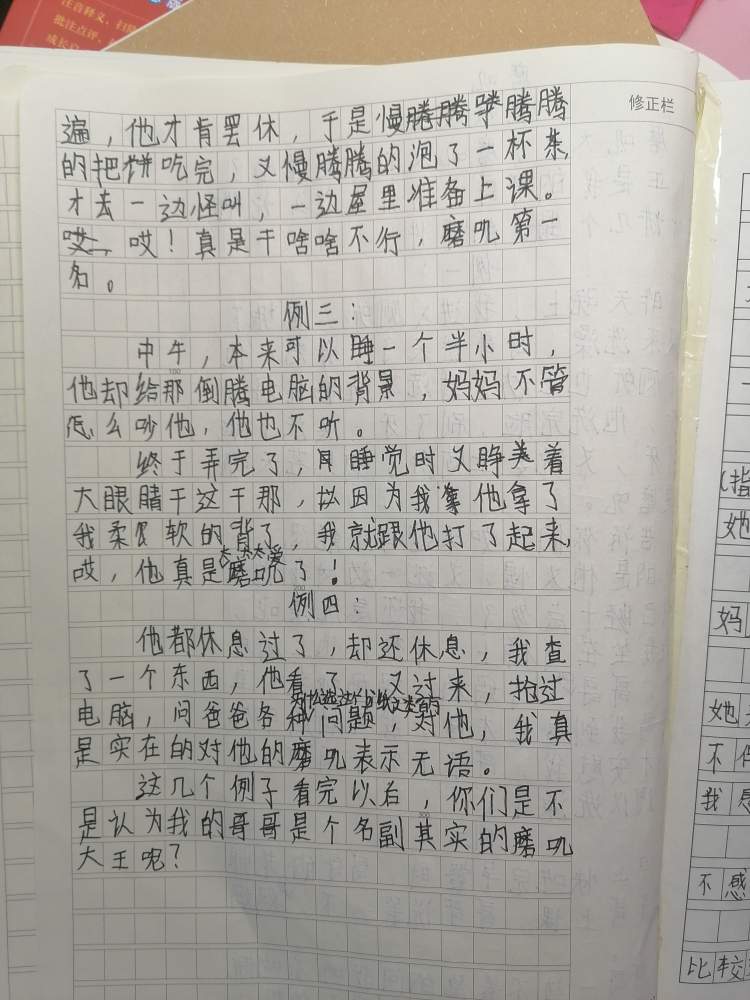 注音释义、扫
批注点评、
成长
修正栏
遍，他才肯罢休，于是慢腾腾腾腾
的把饼吃完，又慢腾腾的泡了一杯茶
才去一边怪叫，一边屋里准备上课。
哎，哎！真是干啥啥不行，磨叽第一
名。
例三：
中午，本来可以睡一个半小时，
100
他却给那倒腾电脑的背景，妈妈不管
怎么吵他，他也不听。
终于弄完了，睡觉时又睁着
大眼睛干这干那，以因为我拿他拿了
我柔软的背了，我就跟他打了起来
太太太爱
哎，他真是磨叽了！
200
例四：
他都休息过了，却还休息，我查
了一个东西，他看了，又过来，抢过
为什么选这个
电脑，问爸爸各种问题，对他，我真
是实在的对他的磨叽表示无语。
这几个例子看完以后，你们是不
是认为我的哥哥是个名副其实的磨叽
大王呢？
指
她
妈
她
不
我
不感
比较